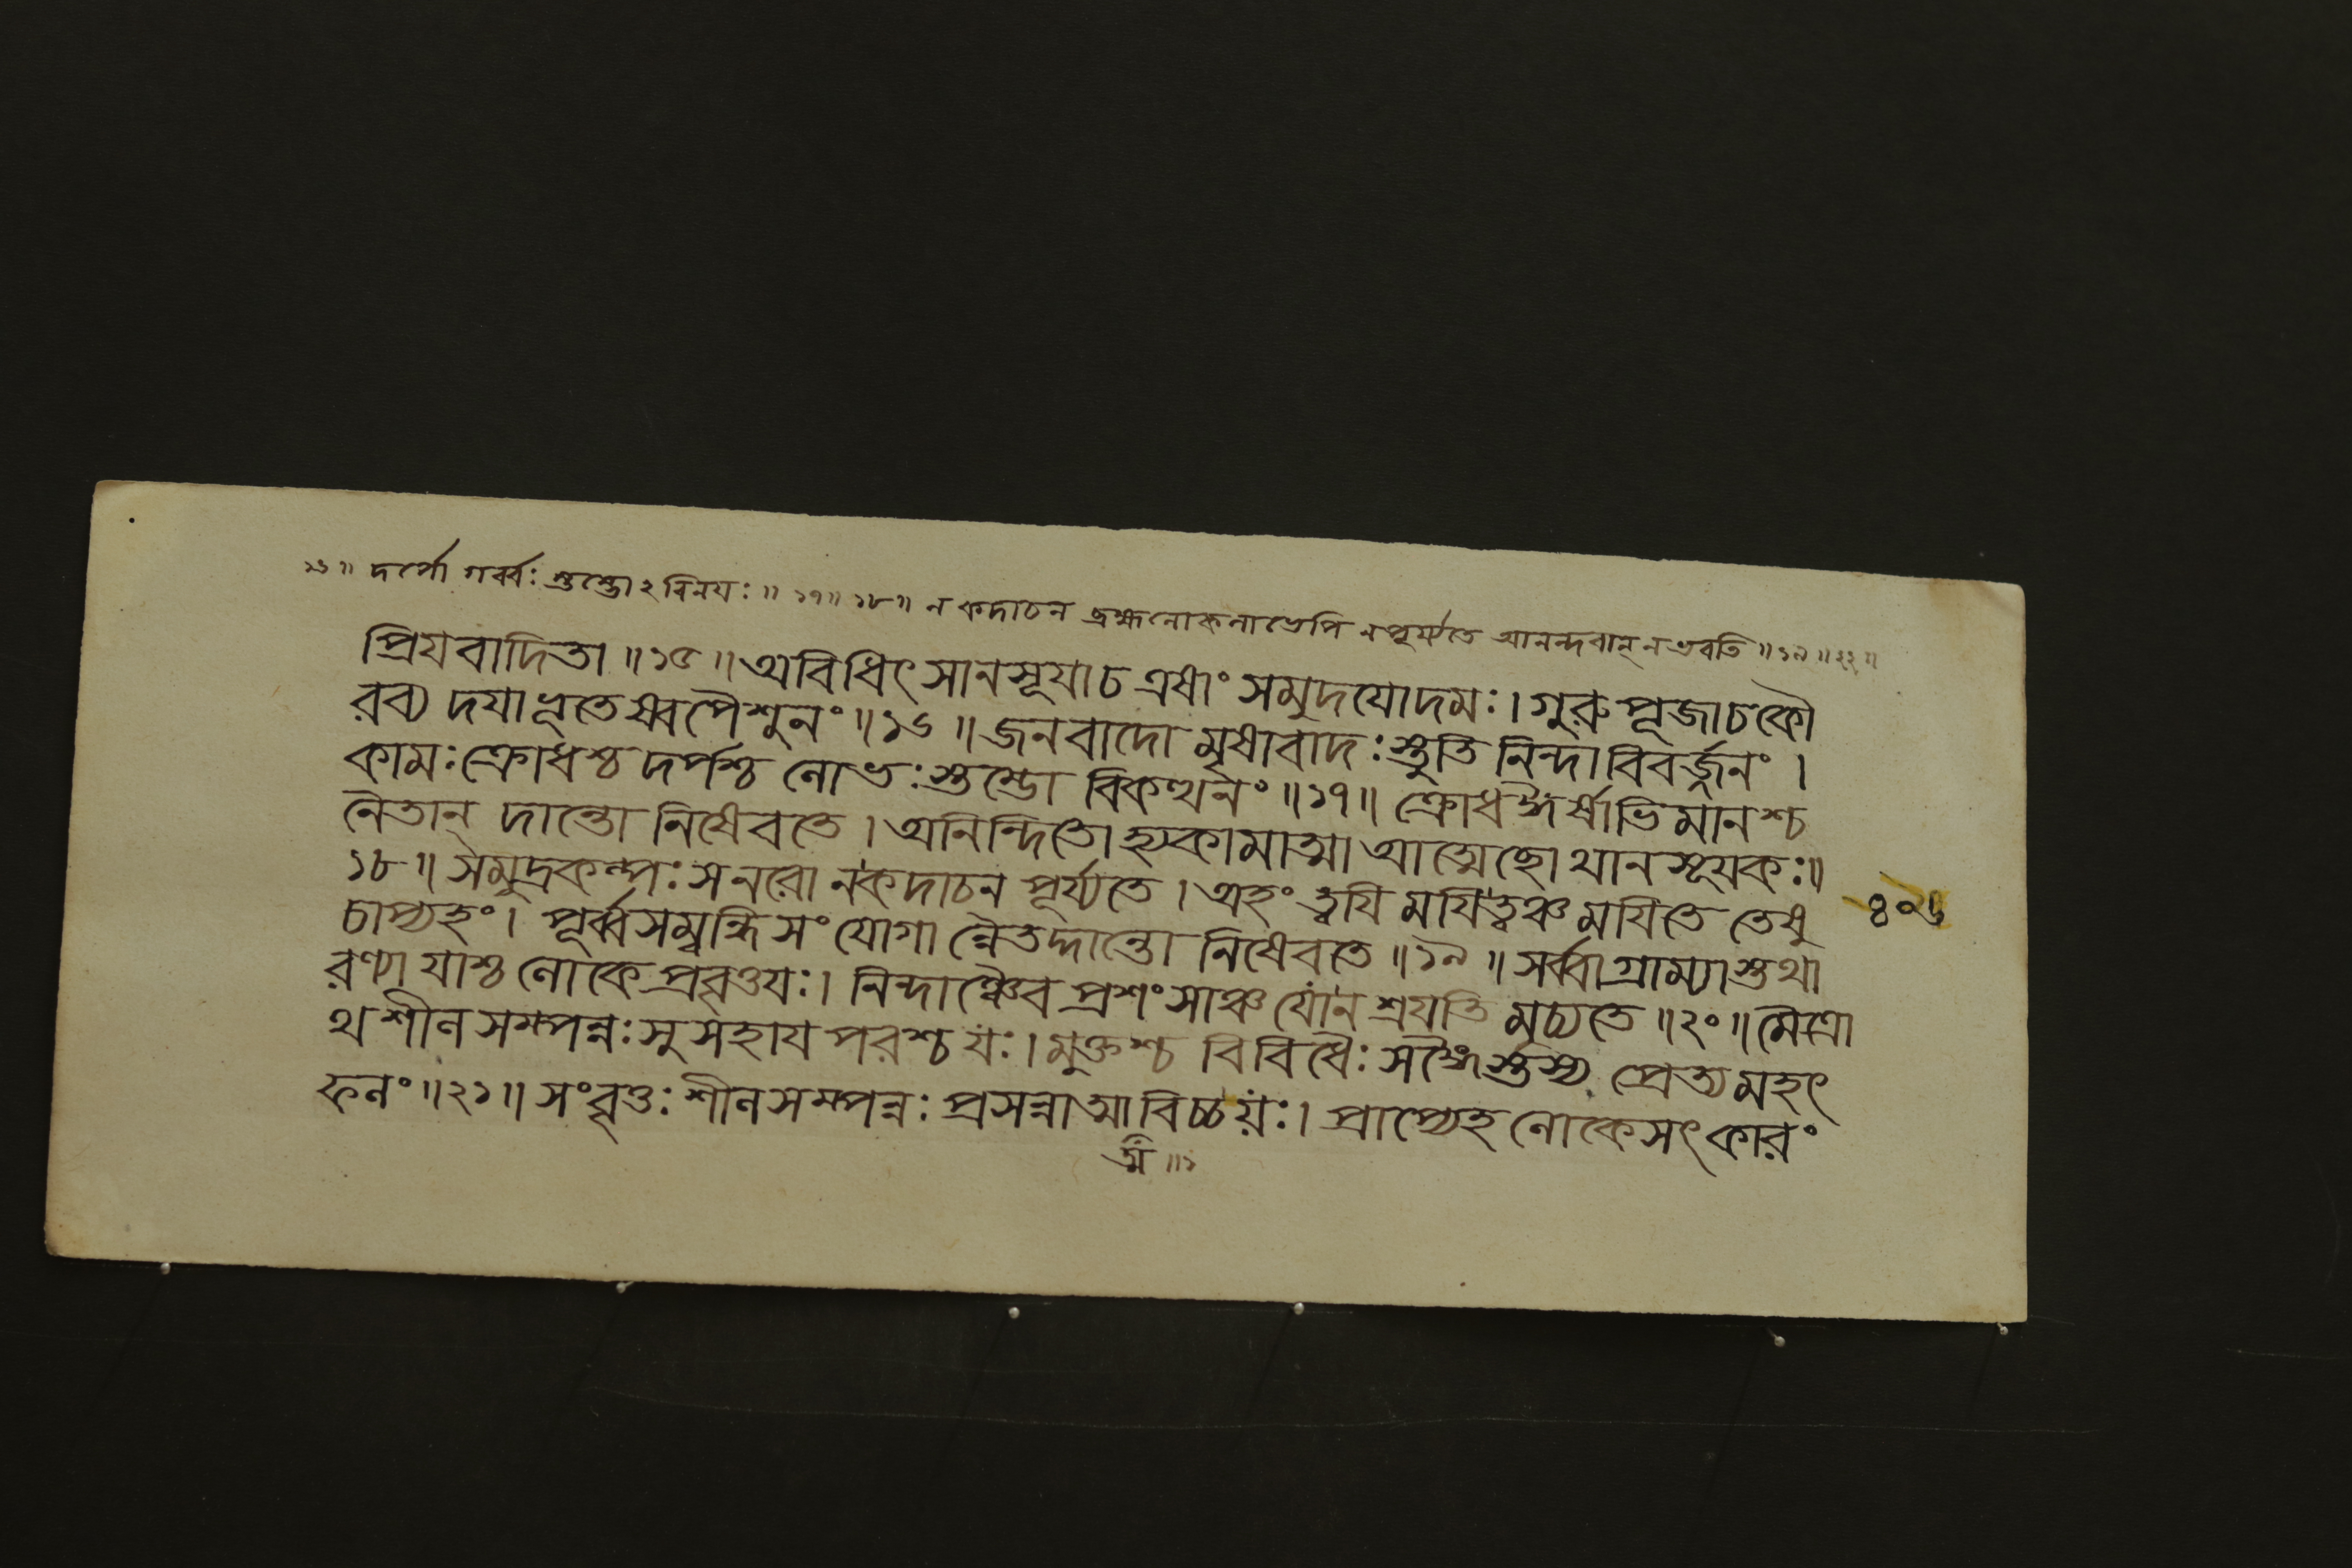 ১৬॥ দর্পো গর্ব্বঃ স্তম্ভোঽবিনযঃ॥ ১৭॥ ১৮॥ ন কদাচন ব্রহ্মলোকলাভেপি ন পূর্য্যতে আনন্দবান্ ন ভবতি॥ ১৯॥ ২২॥
প্রিযবাদিতা॥ ১৫॥ অবিধিৎসানসূযাচ এষাং সমুদযোদমঃ। গুরুপূজাচকৌ
রব্য দযাভূতেষ্বপৈশুনং॥ ১৬॥ জনবাদো মৃষাবাদঃ স্তুতিনিন্দাবিবর্জ্জনং।
কামঃ ক্রোধশ্চ দর্পশ্চ লোভঃ স্তম্ভো বিকত্থনং॥ ১৭॥ ক্রোধঈর্ষাভিমানশ্চ
নৈতান্ দান্তো নিষেবতে। অনিন্দিতোহ্যকামাত্মা আত্মেছো থানসূযকঃ॥
১৮॥ সমুদ্রকল্পঃ স নরো নকদাচন পূর্য্যতে। অহং ত্বযি মযিত্বঞ্চ মযিতে তেষু
চাপ্যহং। পূর্ব্বসম্বন্ধিসংযোগা ন্নৈতদ্দান্তো নিষেবতে॥ ১৯॥ সর্ব্বাগ্রাম্যাস্তথা
রণ্যা যাশ্চ লোকে প্রবৃত্তযঃ। নিন্দাঞ্চৈব প্রশংসাঞ্চ যোন শ্রযতি মুচ্যতে॥ ২০॥ মৈত্রো
থ শীলসম্পন্নঃ সুসহায পরশ্চ যঃ। মুক্তশ্চ বিবিধৈঃ সঙ্গৈস্তস্য প্রেত্য মহৎ
ফলং॥ ২১॥ সংবৃত্তঃ শীলসম্পন্নঃ প্রসন্নাত্মাবিচ্চযঃ। প্রাপ্যেহ লোকেসৎকারং
ত্ম॥ ১
৪০৬